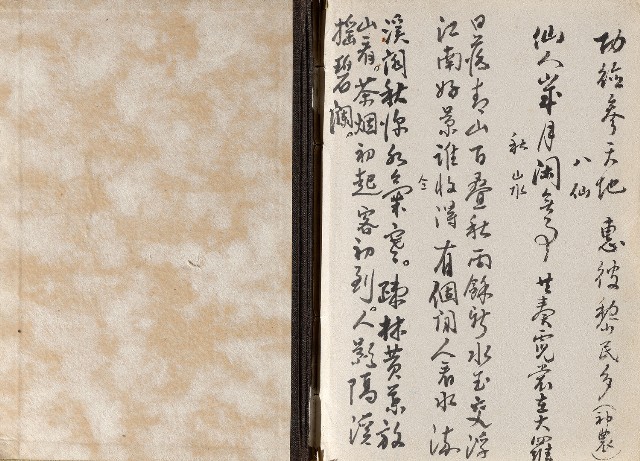 功參天地 惠彼黎民多(神農)
八仙
仙人歲月閑無事 共奏霓裳在大羅
秋山水
日落青山百叠秋雨餘新水玉交浮
江南好景誰收得 有個人看水流
仝
溪閣秋深水氣寒。疎林黄葉放
山看。茶烟初起客初到。人影隔溪
摇碧瀾。